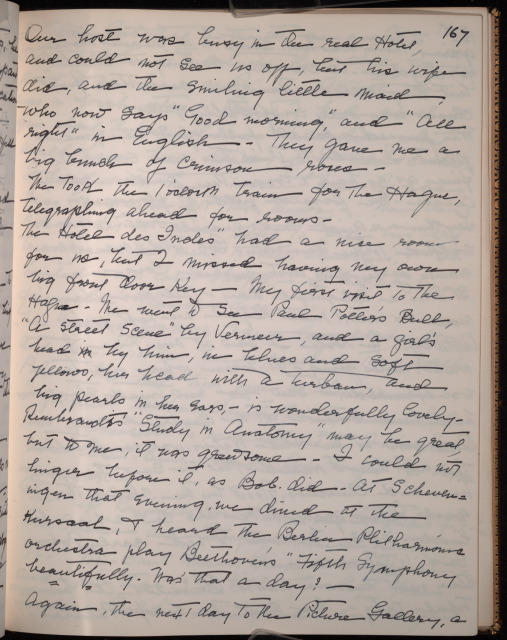 167
Our host was busy in the real Hotel,
and could not see us off, but his wife
did, and the smiling little maid,
who now says "Good morning," and "All
right" in English - They gave me a
big bunch of crimson roses -
We took the 1 o'clock train for The Hague,
telegraphing ahead for rooms -
The Hotel des Indes" had a nice room
for us, but I missed having my own
big front door key - My first visit to The
Hague - We went to see Paul Potter's Bull,
"A Street Scene" by Vermeer, and a girl's
head by him, in blues and soft
yellows, her head with a turban, and
big pearls in her ears, - is wonderfully lovely -
Rembrandt's "Study in Anatomy" may be great,
but to me, it was gruesome - I could not
linger before it, as Bob did - At Scheven=
ingen that evening, we dined at the
Kursaal, & heard the Berlin Philharmonic
orchestra play Beethoven's "Fifth Symphony
beautifully. Was that a day? -
Again, the next day to the Picture Gallery, a